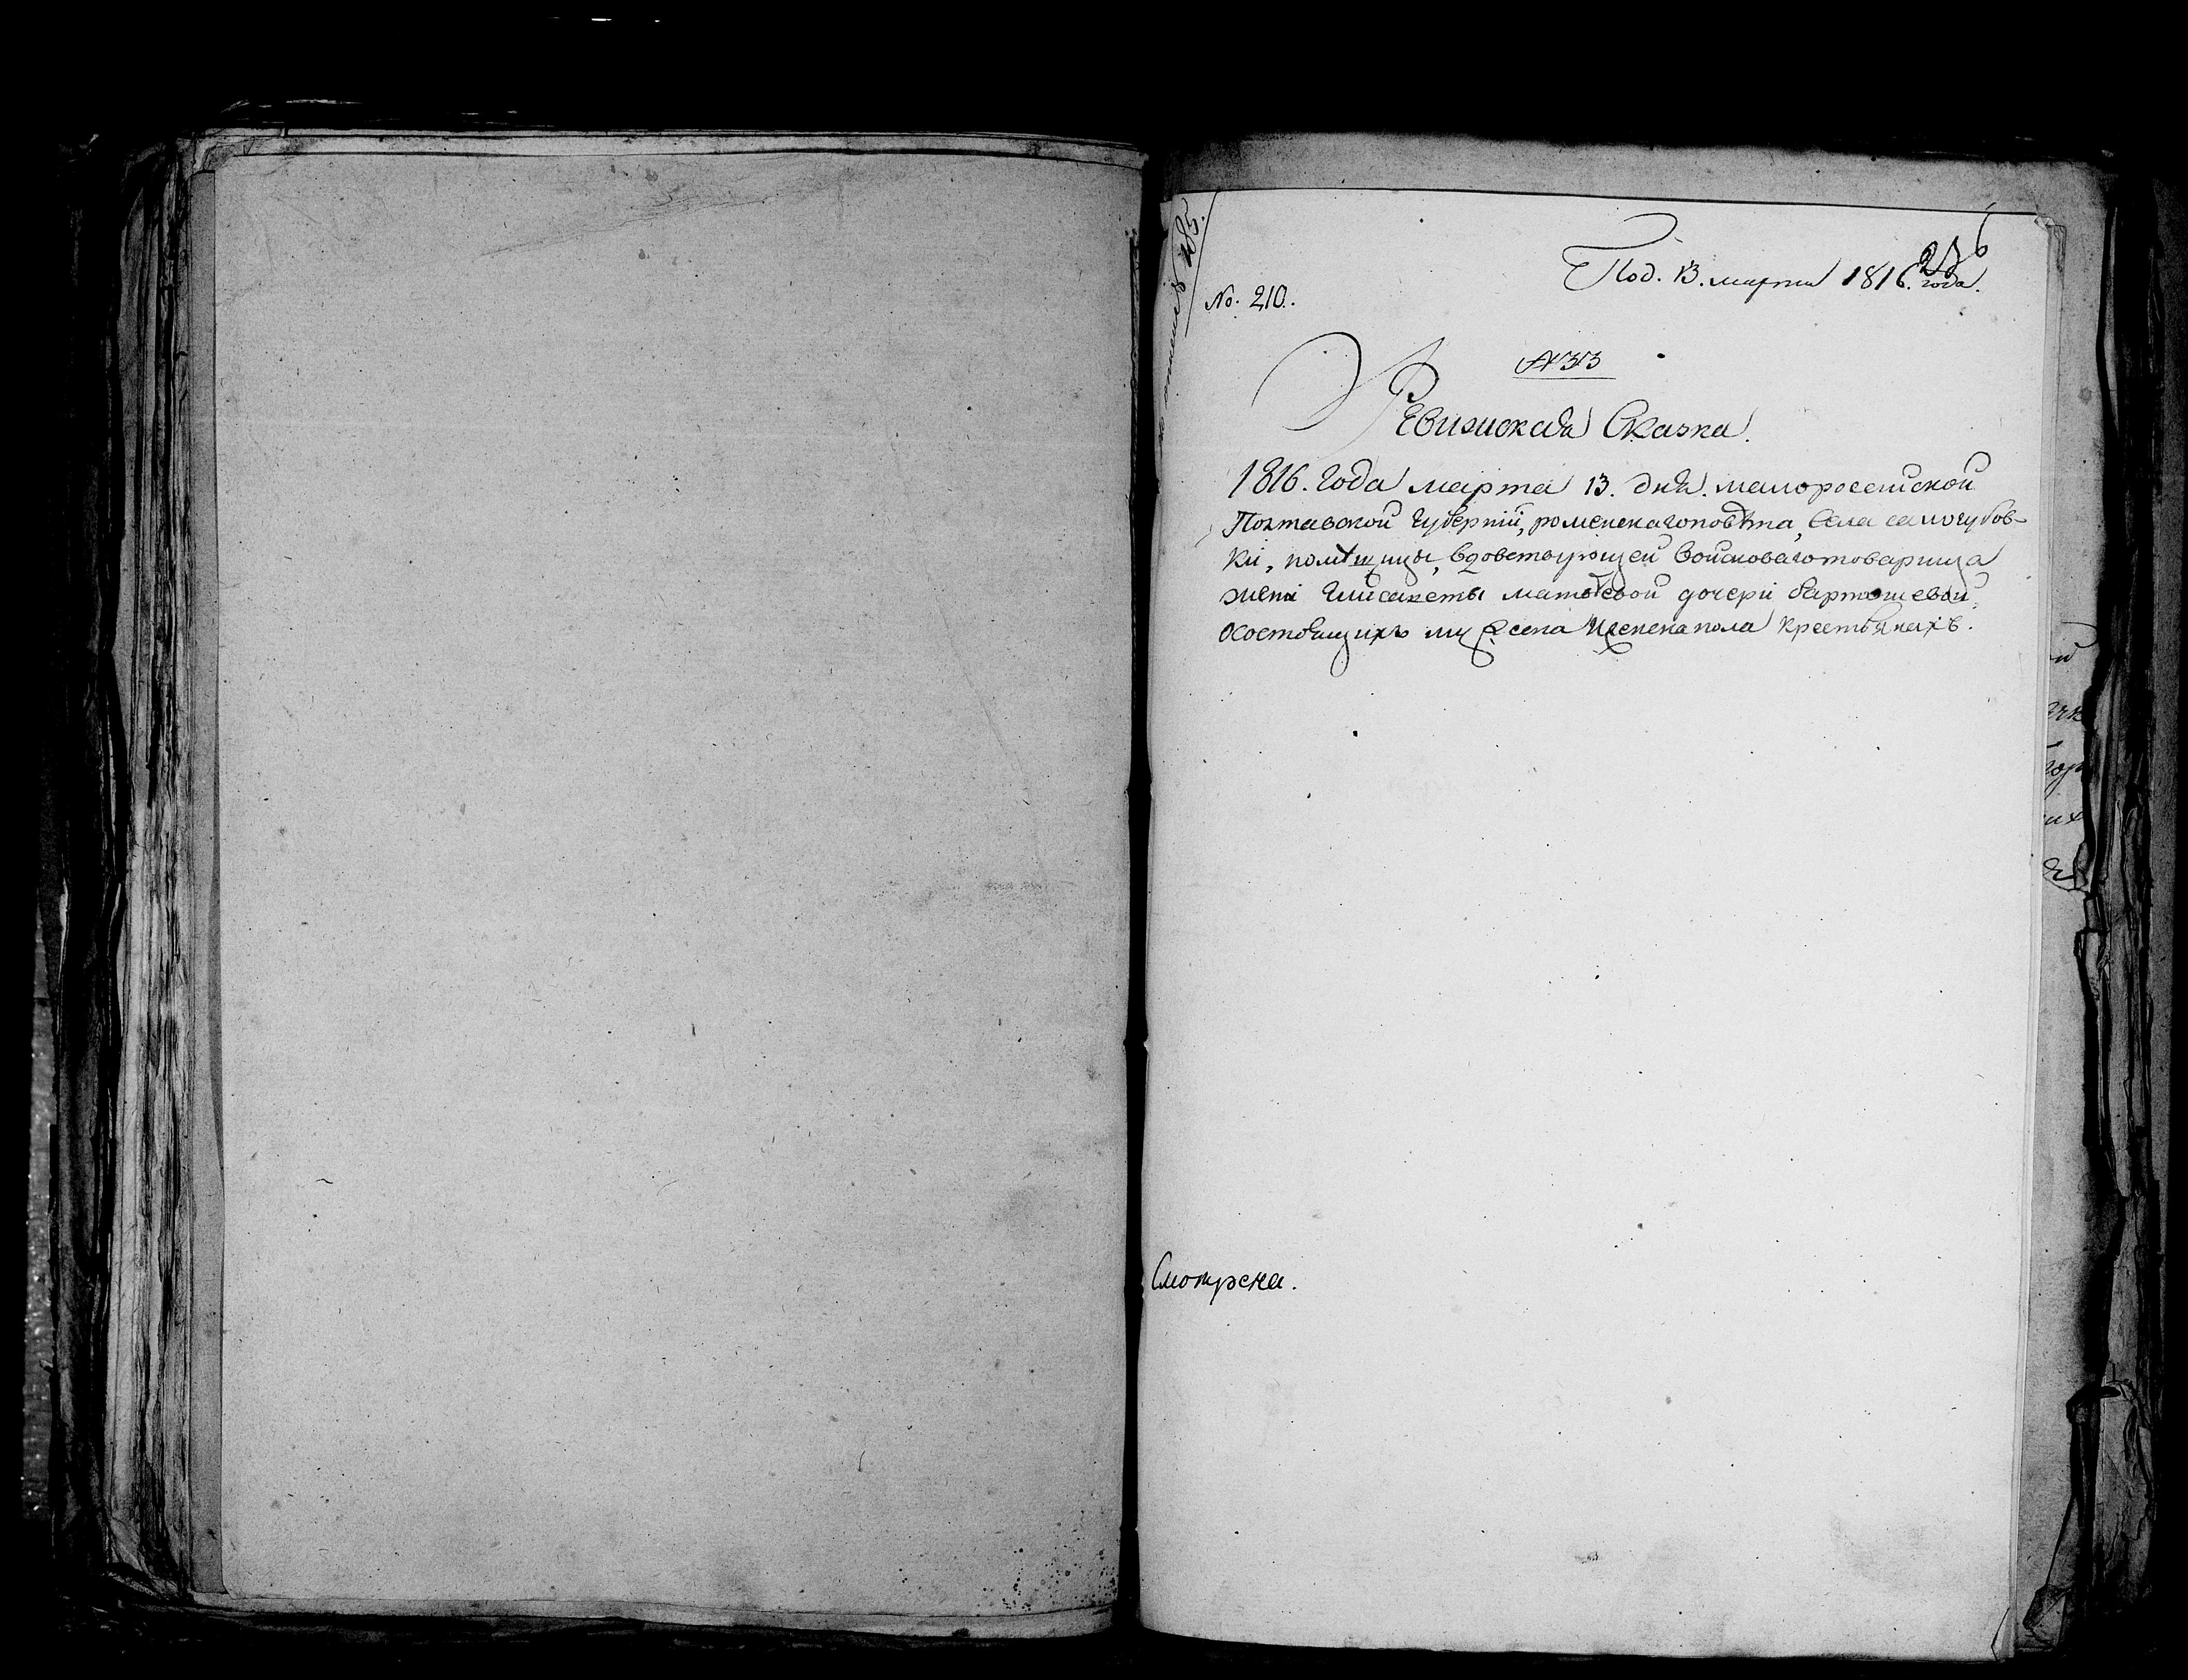 Под. 13. марта 1816. года.
No: 210.
Ревизская Сказка.
1816. года марта 13. дня. малоросеииской
Полтавской губерніи, роменскагоповѣта, села самогубов-
ки, помѣщицы, вдовствующей войсковаготоварища
жены Елисаветы матвѣевой дочери бартошевой,
Осостоящихъ мужеска Иженскапола крестьянахъ.
Смотрена.